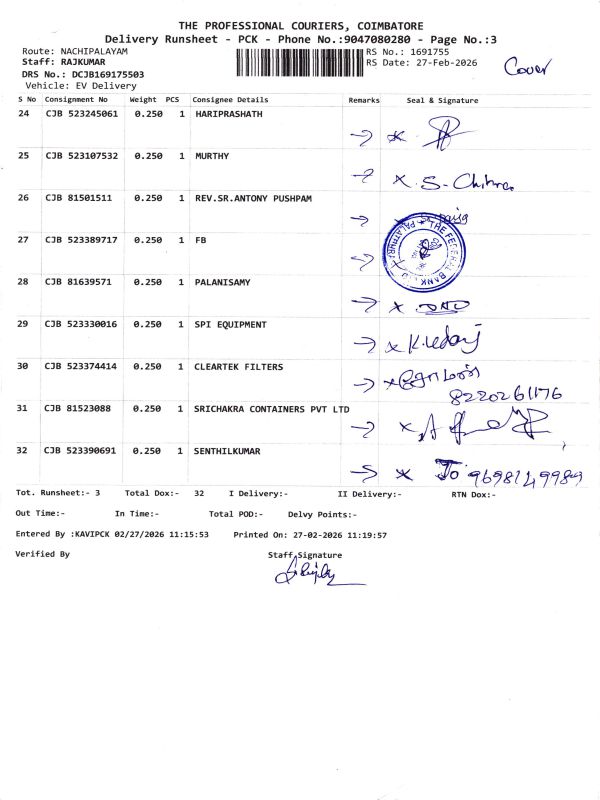 THE PROFESSIONAL COURIERS, COIMBATORE
Delivery Runsheet - PCK - Phone No.:9047080280 - Page No.:3
Route: NACHIPALAYAM RS No.: 1691755
Staff: RAJKUMAR RS Date: 27-Feb-2026 Cover
DRS No.: DCJB169175503
Vehicle: EV Delivery
S No Consignment No Weight PCS Consignee Details Remarks Seal & Signature
24 CJB 523245061 0.250 1 HARIPRASHATH
25 CJB 523107532 0.250 1 MURTHY x S-Chitra
26 CJB 81501511 0.250 1 REV.SR.ANTONY PUSHPAM
27 CJB 523389717 0.250 1 FB THE FEDERAL BANK LTD
28 CJB 81639571 0.250 1 PALANISAMY
29 CJB 523330016 0.250 1 SPI EQUIPMENT
30 CJB 523374414 0.250 1 CLEARTEK FILTERS
8220261176
31 CJB 81523088 0.250 1 SRICHAKRA CONTAINERS PVT LTD
32 CJB 523390691 0.250 1 SENTHILKUMAR
Tot. Runsheet:- 3 Total Dox:- 32 I Delivery:- II Delivery:- RTN Dox:-
Out Time:- In Time:- Total POD:- Delvy Points:-
Entered By :KAVIPCK 02/27/2026 11:15:53 Printed On: 27-02-2026 11:19:57
Verified By Staff Signature